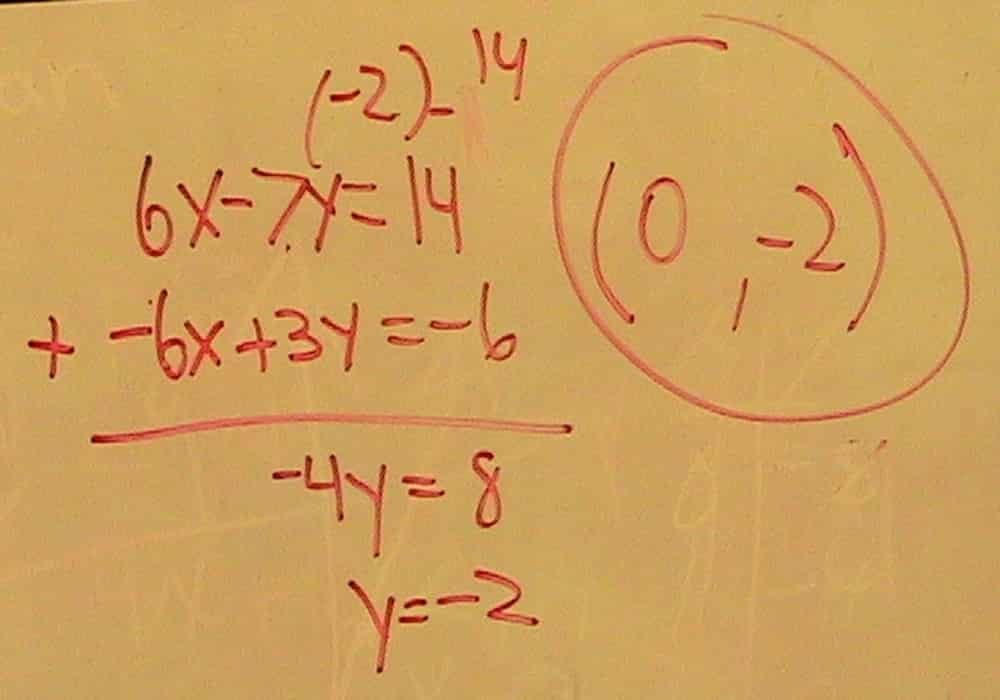 (-2) -14
6x-7y=14
+ -6x+3y=-6
-4y=8
y=-2
(0, -2)